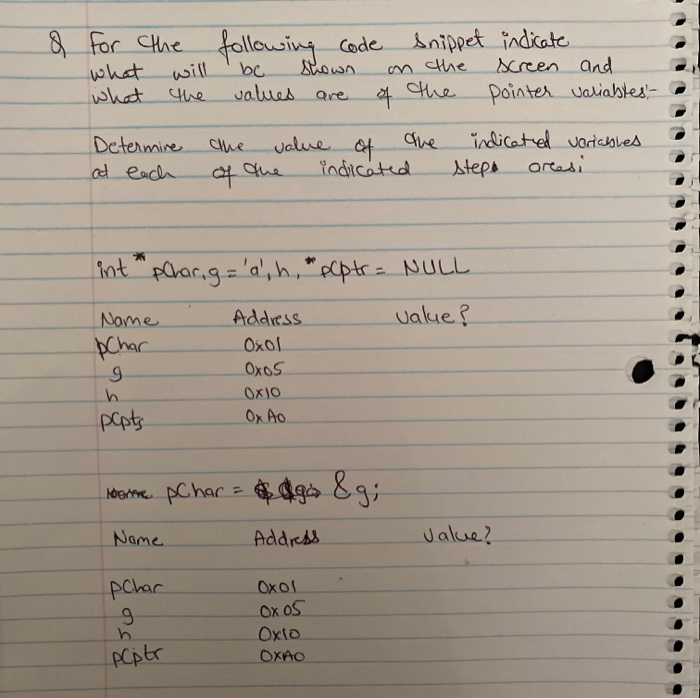 Q For the following code snippet indicate
what will be shown on the screen and
what the values are of the pointer variables:-
Determine the value of the indicated variables
at each of the indicated steps areas:
int *pChar, g = 'a', h, *pCptr = NULL
Name Address Value?
pChar 0x01
g 0x05
h 0x10
pCptr 0xA0
pChar = &g;
Name Address Value?
pChar 0x01
g 0x05
h 0x10
pCptr 0xA0